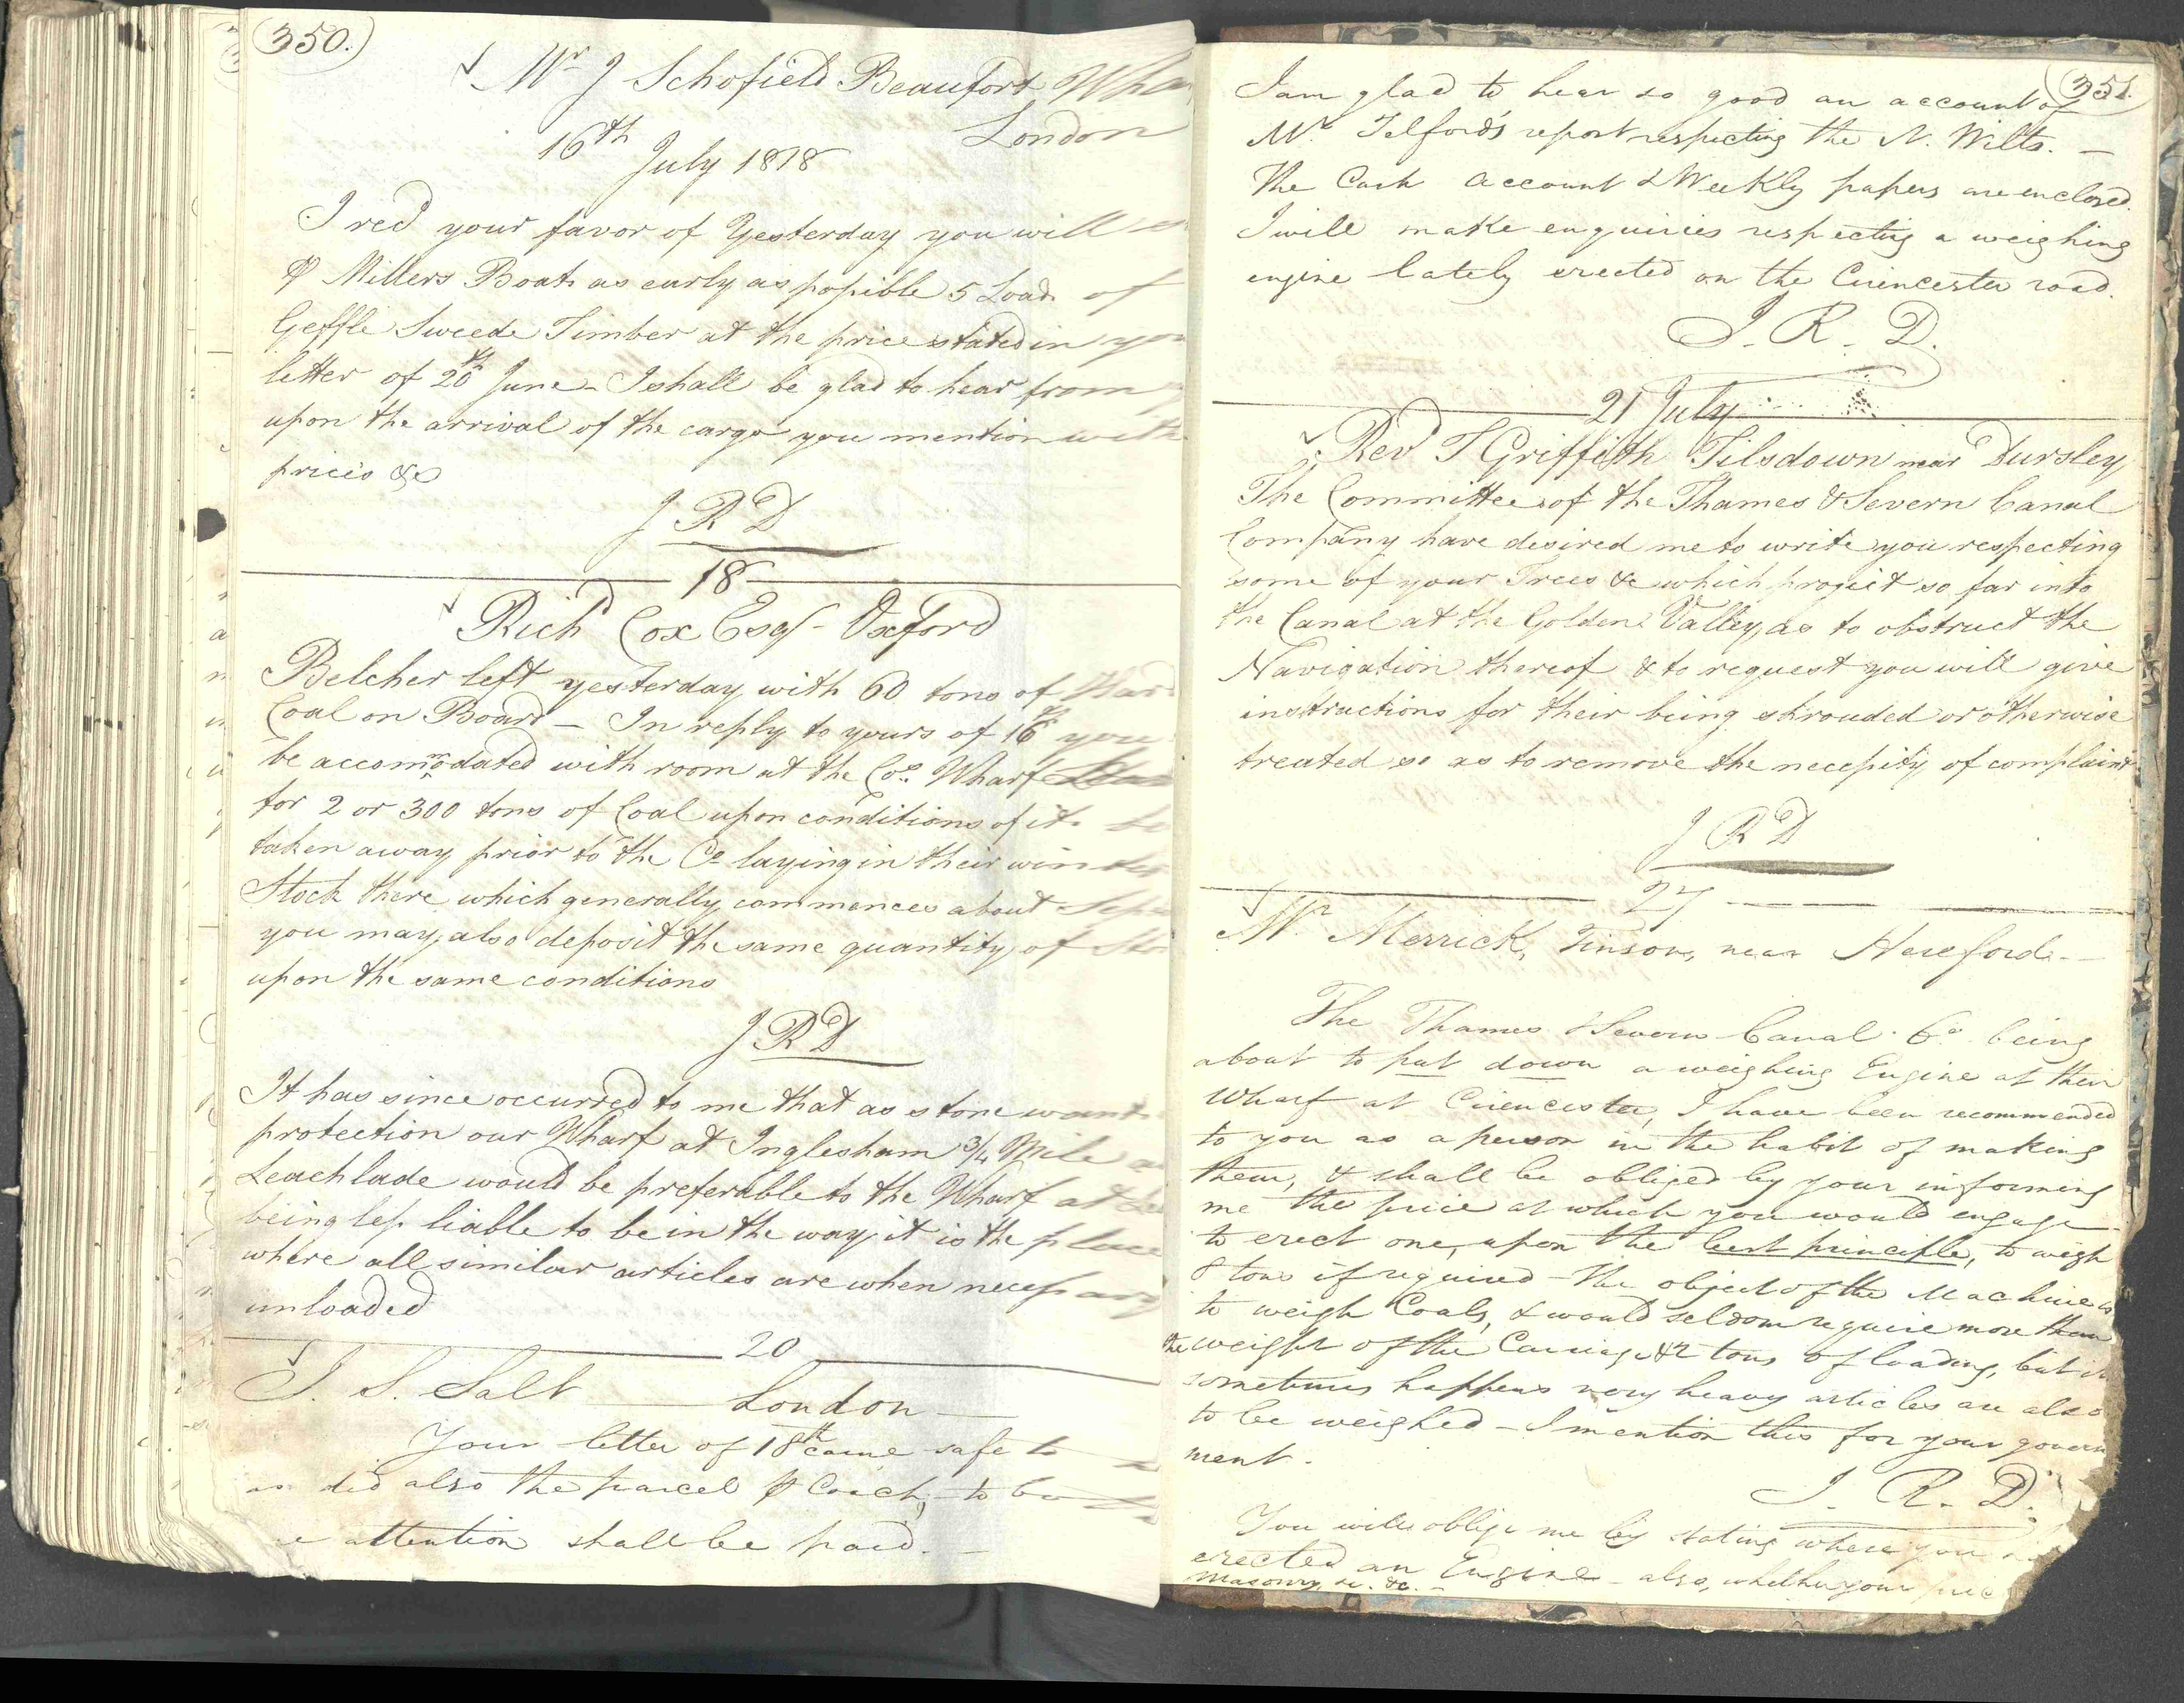 350.
Mr J Schofield Beaufort
London
16th July 1818
I recd your favor of Yesterday you will
P Millers Boat as early as possible 5 Load of
Geffle Sweede Timber at the price stated in
letter of 20th June - I shall be glad to hear from
upon the arrival of the cargo you mention with
prices &c
J R D
18
Richd Cox Esqr - Oxford
Belcher left yesterday with 60 tons of
Coal on Board - In reply to yours of 16th you
be accommodated with room at the Cos. Wharf
for 2 or 300 tons of Coal upon conditions of its
taken away prior to the Co laying in their winter
Stock there which generally commences about
you may also deposit the same quantity of
upon the same conditions
J R D
It has since occurred to me that as stone wants
protection our Wharf at Inglesham 3/4 Mile
Leachlade would be preferable to the Wharf at
being less liable to be in the way, it is the place
where all similar articles are when necessary
unloaded
20
J. S. Salt London
Your letter of 18th came safe to
as did also the parcel P Coach, to
attention shall be paid. -
351.
I am glad to hear so good an account of
Mr. Telford's report respecting the N. Wilts. -
The Cash Account & Weekly papers are enclosed.
I will make enquiries respecting a weighing
engine lately erected on the Cirencester road.
J. R. D.
21 July
Revd T Griffith Tilsdown near Dursley
The Committee of the Thames & Severn Canal
Company have desired me to write you respecting
some of your Trees &c which project so far into
the Canal at the Golden Valley, as to obstruct the
Navigation thereof & to request you will give
instructions for their being shrouded or otherwise
treated so as to remove the necessity of complaint
J R D
27
Mr. Merrick, Tinson, near Hereford. -
The Thames & Severn Canal Co. being
about to put down a weighing Engine at their
Wharf at Cirencester, I have been recommended
to you as a person in the habit of making
them, & shall be obliged by your informing
me the price at which you would engage
to erect one, upon the best principle, to weigh
8 tons if required - the object of the Machine is
to weigh Coals, & would seldom require more than
the weight of the Carriage & 2 tons of loading, but it
sometimes happens very heavy articles are also
to be weighed - I mention this for your govern
ment.
J. R. D.
You will oblige me by stating where you
erected an Engine - also, whether your
masonry, &c. -